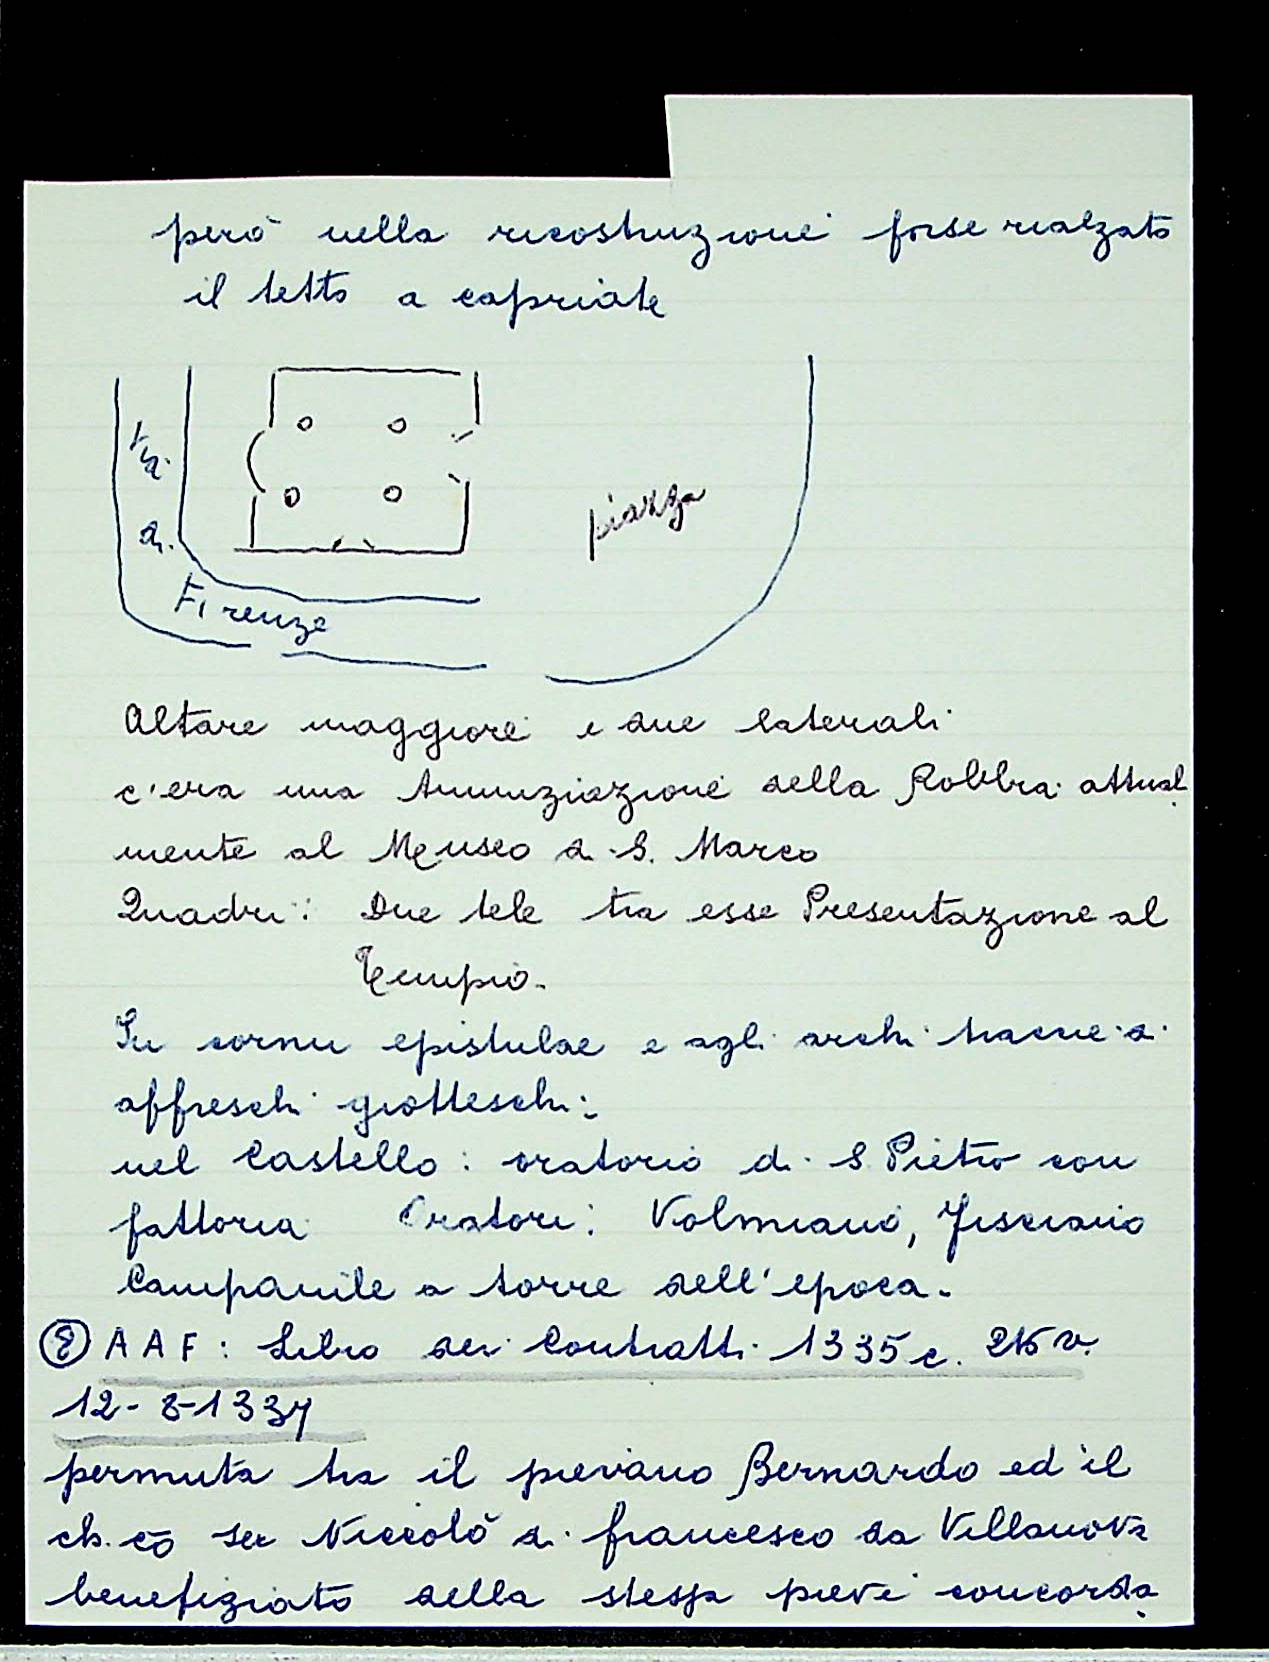 però nella ricostruzione forse rialzato
il tetto a capriate
Via
di
Firenze
piazza
Altare maggiore e due laterali
c'era una Annunziazione della Robbia attual
mente al Museo di S. Marco
Quadri: Due tele tra esse Presentazione al
Tempio.
In cornu epistulae e agli archi tracce di
affreschi giotteschi:
nel Castello: oratorio di S Pietro con
fattoria Oratori: Volmiano,
Campanile a torre dell'epoca.
⑧ AAF: Libro dei Contratti 1335 c. 215 v.
permuta tra il pievano Bernardo ed il
ch. co ser Niccolò di francesco da Villanova
benefiziato della stessa pieve concorda